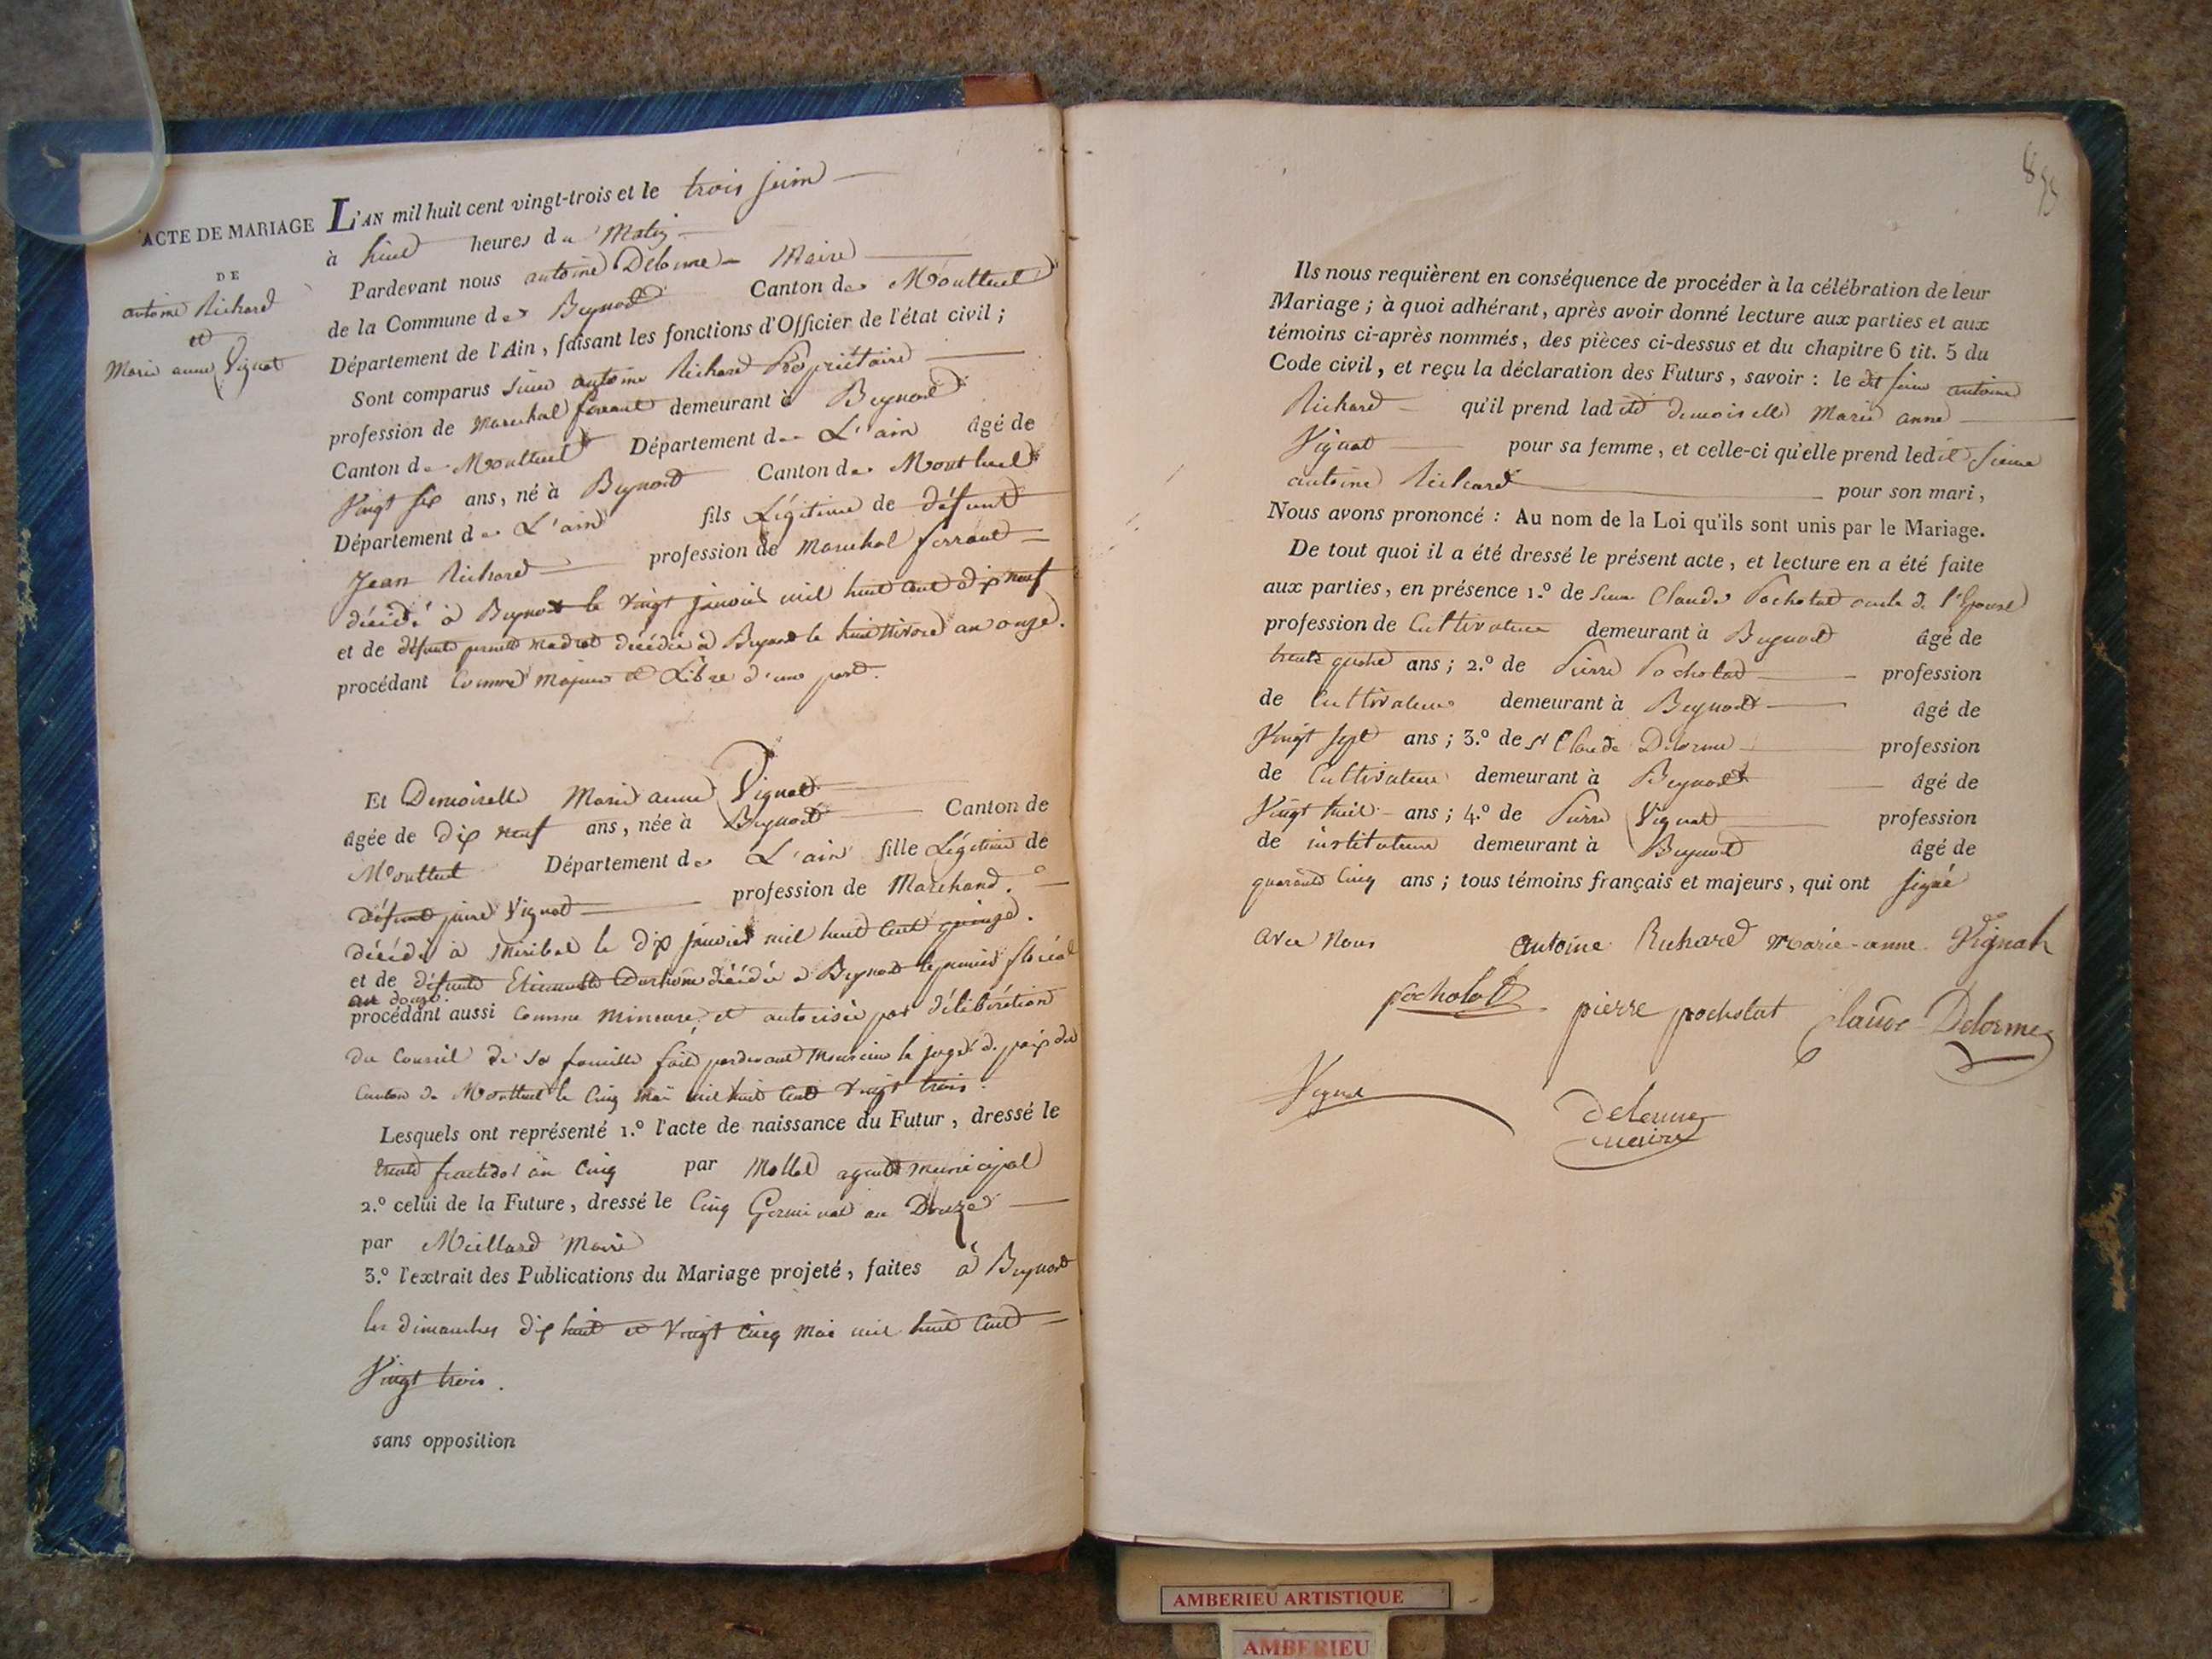 ACTE DE MARIAGE
DE
antoine Richard
et
Marie anne Vignat
L'AN mil huit cent vingt-trois et le trois juin
à huit heures du Matin
Pardevant nous antoine Delorme Maire
de la Commune de Beynost Canton de Montluel
Département de l'Ain, faisant les fonctions d'Officier de l'état civil;
Sont comparus sieur antoine Richard Propriétaire
profession de Marechal ferrant demeurant à Beynost
Canton de Montluel Département de L'ain âgé de
Vingt six ans, né à Beynost Canton de Montluel
Département de L'ain fils Légitime de défunt
Jean Richard profession de Marechal ferrant
décédé à Beynost le vingt janvier mil huit cent dix neuf
et de défunte décédée à Beynost le huit Nivose an onze.
procédant Comme Majeur et Libre d'une part.
Et Demoiselle Marie anne Vignat
âgée de dix neuf ans, née à Beynost Canton de
Montluel Département de L'ain fille Légitime de
défunt Vignat profession de Marchand.
décédé à Miribel le dix janvier mil huit cent quinze.
et de défunte décédée à Beynost le premier floréal
an douze.
procédant aussi Comme Mineure, et autorisée par délibération
du Conseil de sa famille fait pardevant Monsieur le juge de paix du
Canton de Montluel le Cinq Mai mil huit cent vingt trois.
Lesquels ont représenté 1.º l'acte de naissance du Futur, dressé le
trente fructidor an Cinq par Mollet agent Municipal
2.º celui de la Future, dressé le Cinq Germinal an Douze
par Miellard Maire
3.º l'extrait des Publications du Mariage projeté, faites à Beynost
les dimanches dix huit et Vingt Cinq Mai mil huit Cent
Vingt trois.
sans opposition
Ils nous requièrent en conséquence de procéder à la célébration de leur
Mariage; à quoi adhérant, après avoir donné lecture aux parties et aux
témoins ci-après nommés, des pièces ci-dessus et du chapitre 6 tit. 5 du
Code civil, et reçu la déclaration des Futurs, savoir: le dit sieur antoine
Richard qu'il prend ladite demoiselle Marie anne
Vignat pour sa femme, et celle-ci qu'elle prend ledit sieur
antoine Richard pour son mari,
Nous avons prononcé: Au nom de la Loi qu'ils sont unis par le Mariage.
De tout quoi il a été dressé le présent acte, et lecture en a été faite
aux parties, en présence 1.º de sieur Claude Pochotat oncle de l'Epouse
profession de Cultivateur demeurant à Beynost âgé de
trente quatre ans; 2.º de Pierre Pochotat profession
de Cultivateur demeurant à Beynost âgé de
Vingt sept ans; 3.º de sr Claude Delorme profession
de Cultivateur demeurant à Beynost âgé de
Vingt huit ans; 4.º de Pierre Vignat profession
de instituteur demeurant à Beynost âgé de
quarante Cinq ans; tous témoins français et majeurs, qui ont signé
avec Nous antoine Richard marie-anne Vignat
pochotat pierre pochotat Claude Delorme
Vignat
delorme
maire
AMBERIEU ARTISTIQUE
AMBERIEU